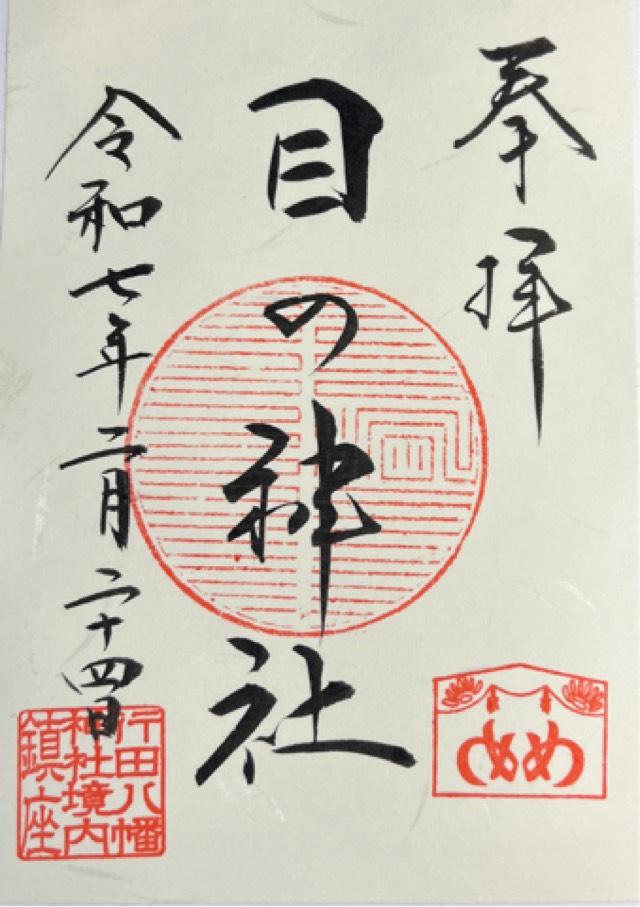 奉拝
目の神社
令和七年二月二十四日
行田八幡
神社境内
鎮座
めめ